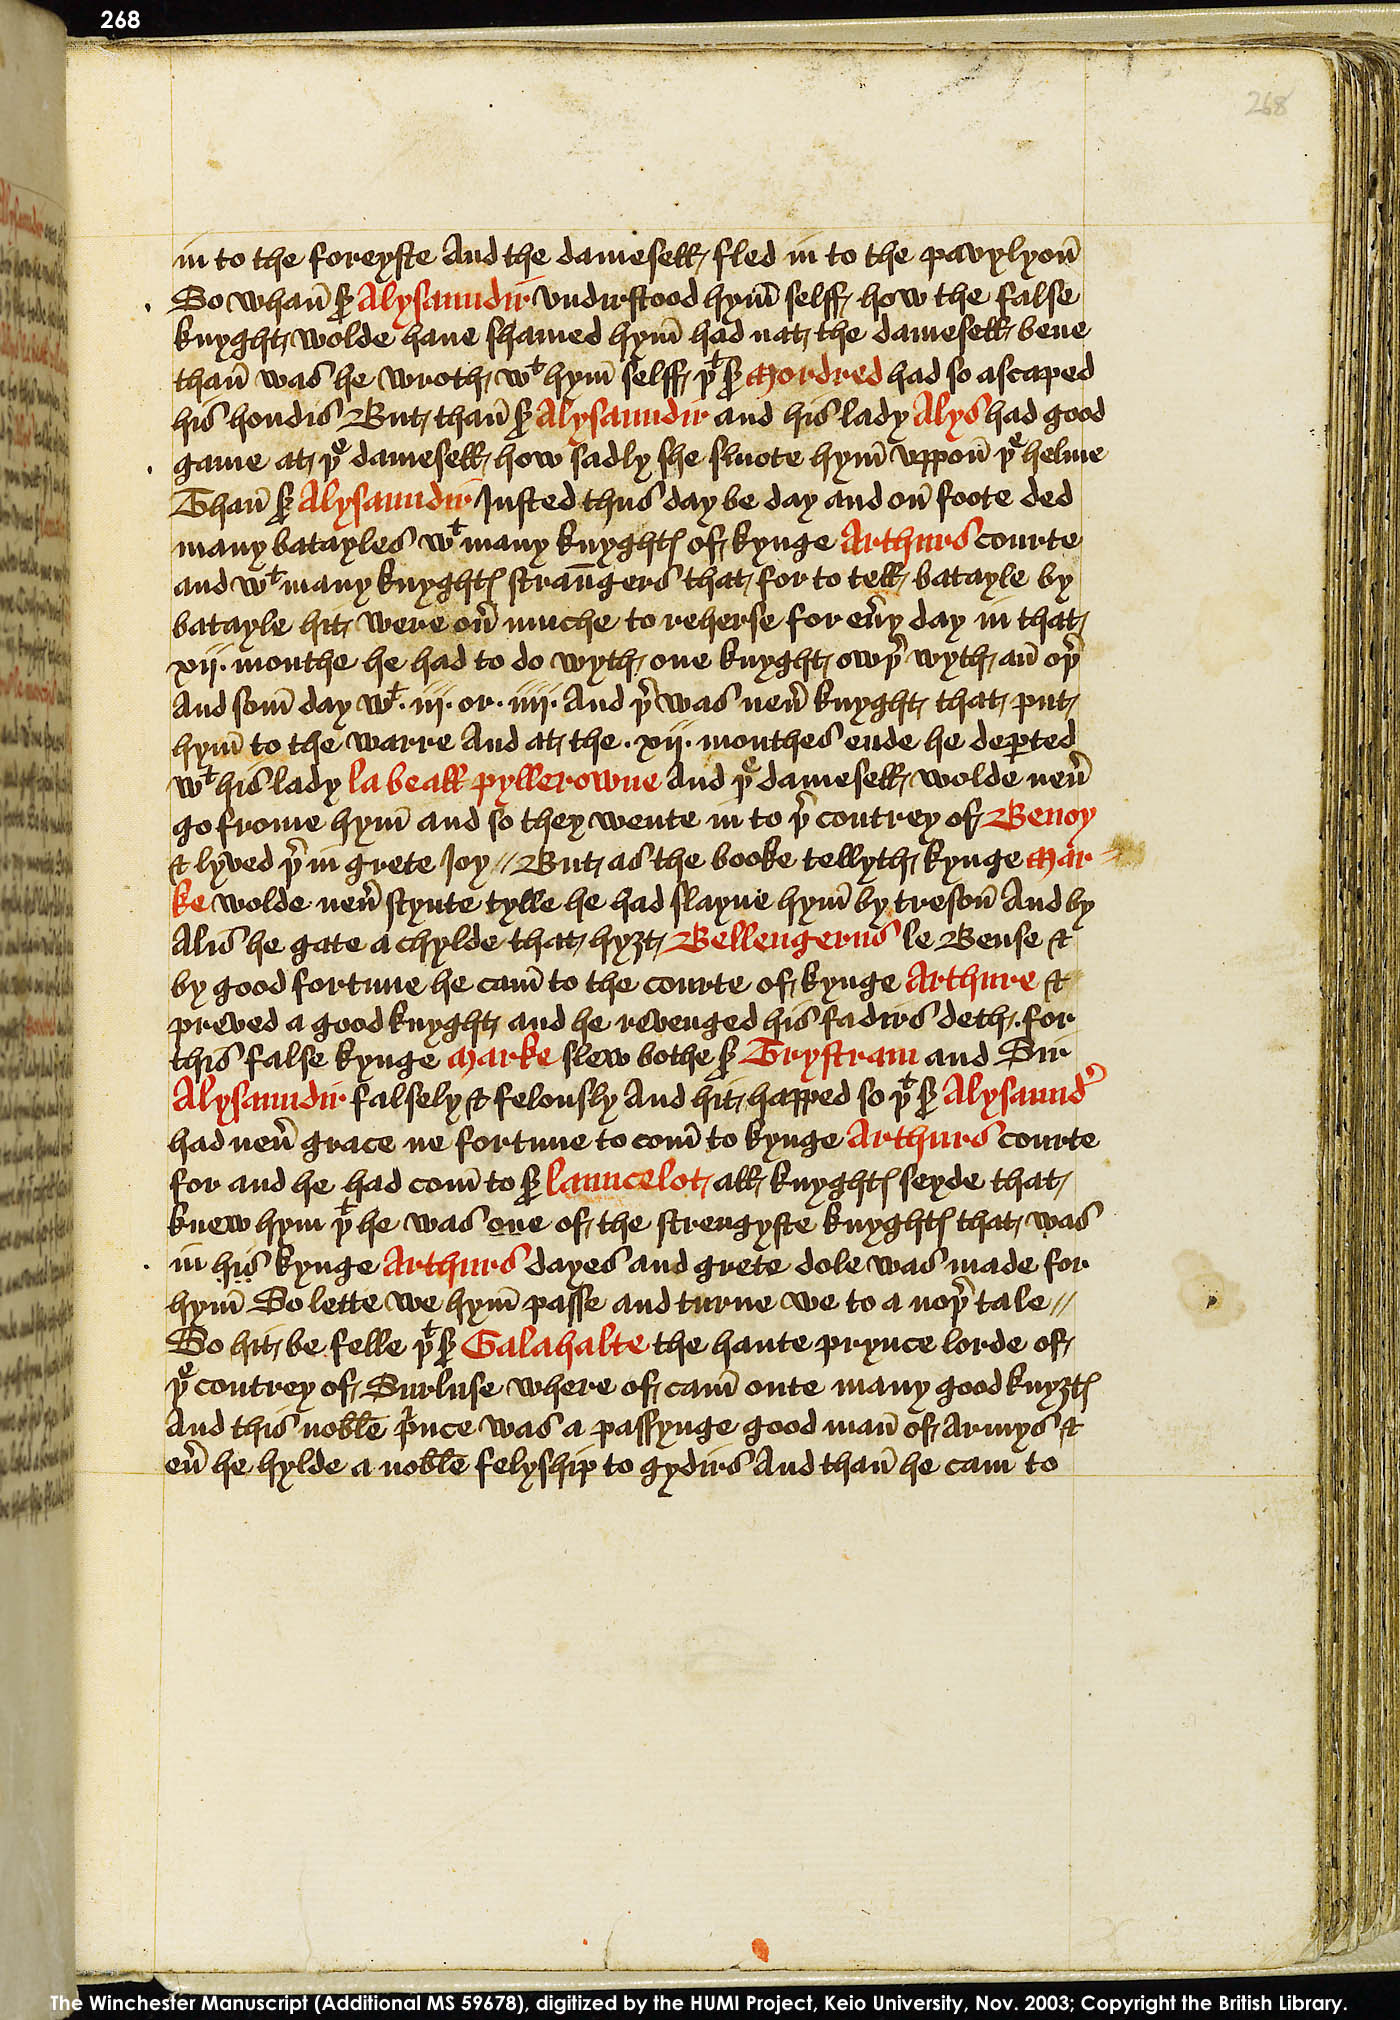 268
268
in to the foreyste And the damesell fled in to the pavylyon̄
So whan̄ sr̛ Alysaundir vndirstood hym̄ selff how the false
knyght wolde haue shamed hym̄ had nat the damesell bene
than̄ was he wroth wᵗ hym̄ selff þᵗ sr̛ Mordred had so ascaped
his hondis But than̄ sr̛ Alysaundir and his lady Alys had good
game at þᵉ damesell how sadly she smote hym̄ vppon̄ þᵉ helme
Than̄ sr̛ Alysaundir Justed thus day be day and on̄ foote ded
many batayles wᵗ many knyghtꝭ of kynge Arthurs courte
and wᵗ many knyghtꝭ stran̄gers that for to tell batayle by
batayle hit were ou̾ muche to reherse for eu̾y day in that
xij. monthe he had to do wyth one knyght owþ̾ wyth an̄ oþ̾
And som̄ day wᵗ .iij. or .iiij. And þ̾ was neu̾ knyght that put
hym̄ to the warre And at the .xij. monthes ende he deꝑted
wᵗ his lady la beall pyllerowne And þᵉ damesell wolde neu̾
go frome hym̄ and so they wente in to þ̾ contrey of Benoy
⁊ lyved þ̾ in grete Joy // But as the booke tellyth kynge Mar=
ke wolde neu̾ stynte tylle he had slayne hym̄ by treson̄ And by
Alis he gate a chylde that hyȝt Bellengerus le Beuse ⁊
by good fortune he cam̄ to the courte of kynge Arthure ⁊
preved a good knyght and he revenged his fadirs deth for
this false kynge Marke slew bothe sr̛ Trystram and Sir
Alysaundir falsely ⁊ felonsly And hit happed so þᵗ sr̛ Alysaund̾
had neu̾ grace ne fortune to com̄ to kynge Arthurs courte
for and he had com̄ to sr̛ launcelot all knyghtꝭ seyde that
knew hym þᵗ he was one of the strengyste knyghtꝭ that was
in hiṣ kynge Arthurs dayes and grete dole was made for
hym̄ So lette we hym̄ passe and turne we to a noþ̾ tale //
So hit be felle þᵗ sr̛ Galahalte the haute prynce lorde of
þᵉ contrey of Surluse where of cam̄ oute many good knyȝtꝭ
And this noble pⁱnce was a passynge good man̄ of Armys ⁊
eu̾ he hylde a noble felyship to gydirs And than̄ he cam to
The Winchester Manuscript (Additional MS 59678), digitized by the HUMI Project, Keio University, Nov. 2003; Copyright the British Library.